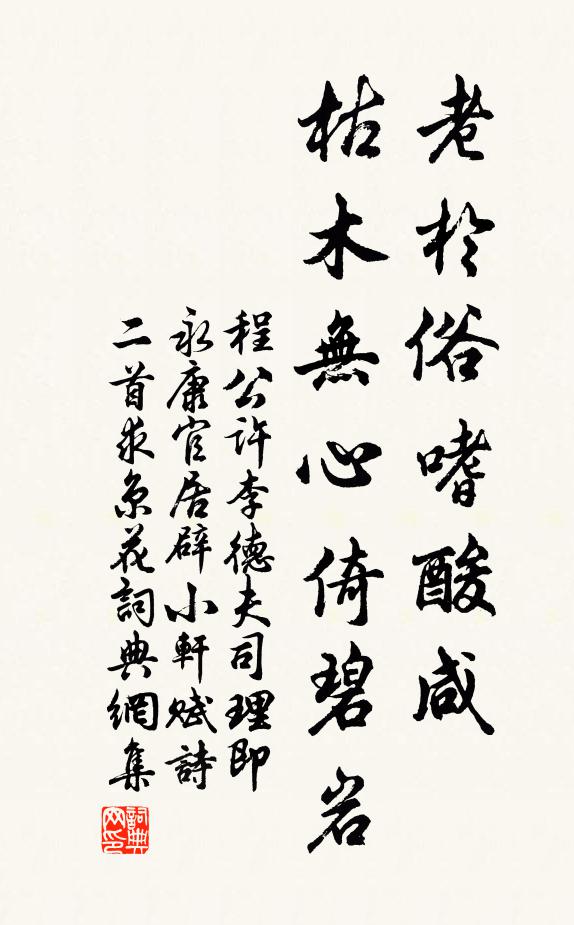 老於俗嗜酸咸
枯木無心倚碧岩
程公許李德夫司理即
永康官居辟小軒賦詩
二首求京花詞典網集
詞典
网印